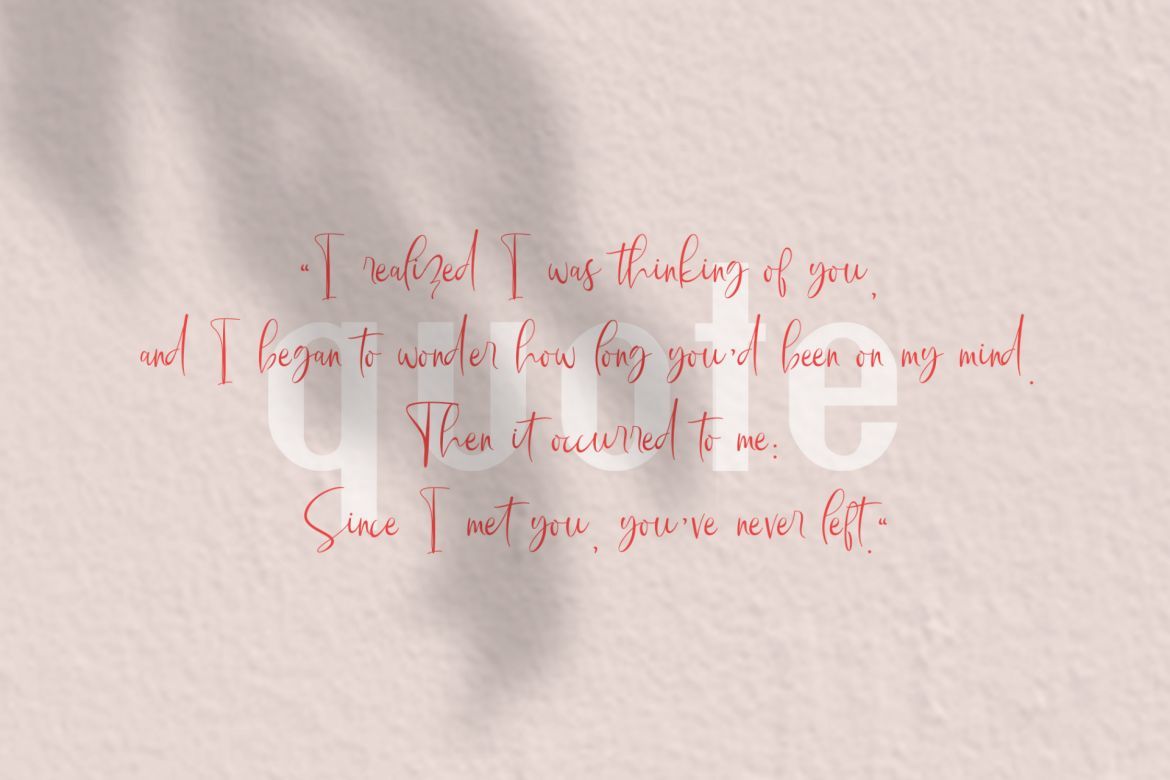 “I realized I was thinking of you,
and I began to wonder how long you’d been on my mind.
Then it occurred to me:
Since I met you, you’ve never left.“
quote